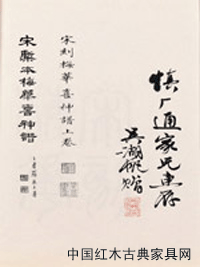 慎厂通家兄惠存
吴湖帆贻
宋刻梅華喜神譜上卷
宋槧本梅華喜神譜
中国红木古典家具网